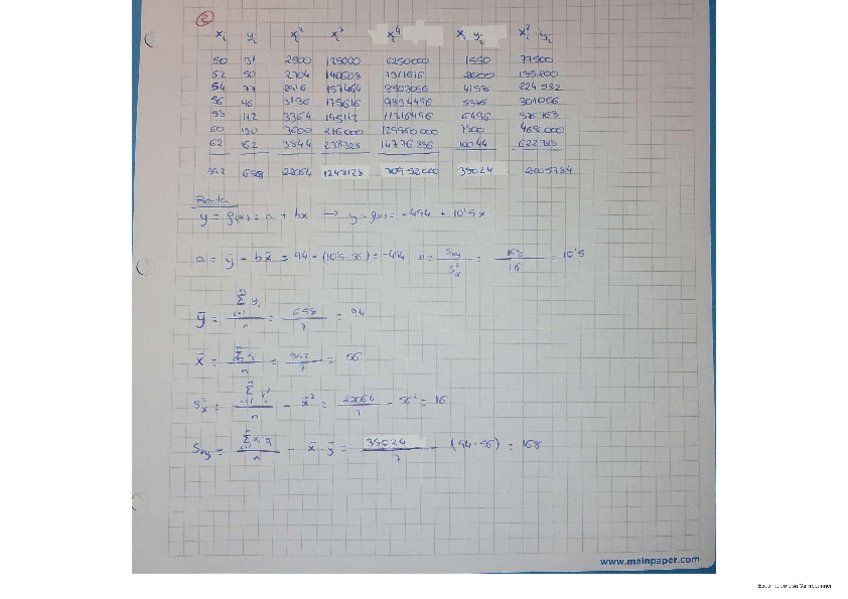 2
xi yi xi² xi³ xi⁴ xi yi xi² yi
50 31 2500 125000 6250000 1550 77500
52 50 2704 140608 7311616 2600 135200
54 77 2916 157464 8503056 4158 224532
56 96 3136 175616 9834496 5376 301056
58 112 3364 195112 11316496 6496 376768
60 130 3600 216000 129960000 7800 468000
62 162 3844 238328 14776336 10044 622728
392 658 22064 1248128 38024
Recta
y = f(x) = a + bx → y = f(x) = -494 + 10'5x
a = ȳ - bx̄ = 94 - (10'5·56) = -494 b = Sxy / Sx² = 168 / 16 = 10'5
ȳ = Σ yi / n = 658 / 7 = 94
x̄ = Σ xi / n = 392 / 7 = 56
Sx² = Σ xi² / n - x̄² = 22064 / 7 - 56² = 16
Sxy = Σ xi yi / n - x̄ ȳ = 38024 / 7 - (94·56) = 168
www.mainpaper.com